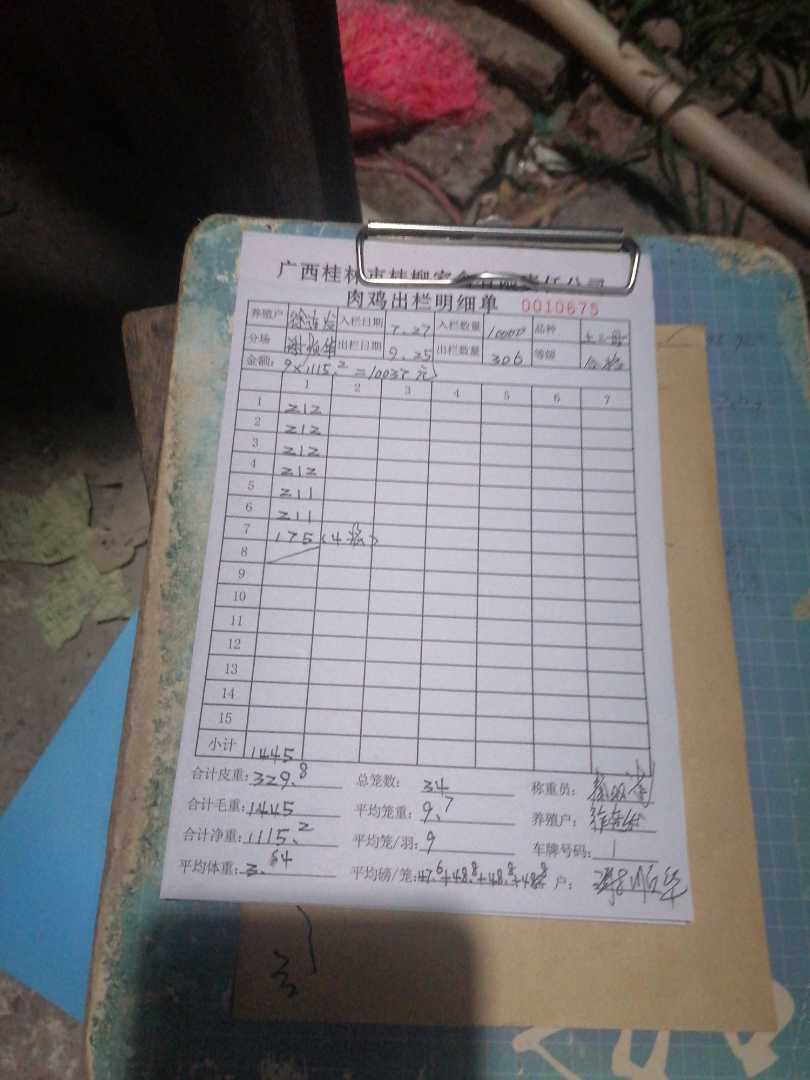 广西桂林市桂柳家禽有限责任公司
肉鸡出栏明细单 0010675
养殖户 入栏日期 7.27 入栏数量 10000 品种
分场 出栏日期 9.25 出栏数量 306 等级 合格
金额: 9×1115.2=10037元
1 2 3 4 5 6 7
1 212
2 212
3 212
4 212
5 211
6 211
7 175(4笼)
8
9
10
11
12
13
14
15
小计 1445
合计皮重: 329.8 总笼数: 34 称重员:
合计毛重: 1445 平均笼重: 9.7 养殖户:
合计净重: 1115.2 平均笼/羽: 9 车牌号码:
平均体重: 3.64 平均磅/笼: 47.6+48.8+48.8+48.8 户: